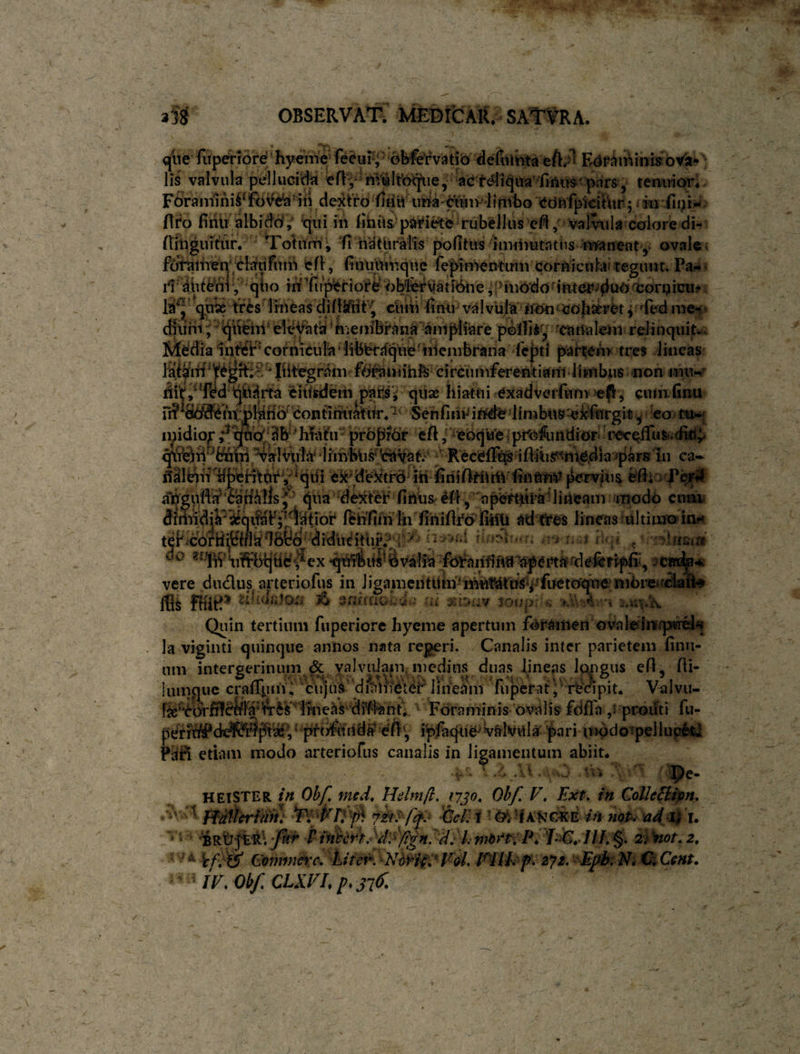 238 OBSERVAT. MEDICAR. SATVRA.
que ſuperiore hyeme ſecui, obſervatio deſumta eſt. Foraminis ova-
lis valvula pellucida eſt, multoque, ac reliqua ſinus pars, tenuior.
Foraminis fovea in dextro ſinu una cum limbo conſpicitur; in ſini-
ſtro ſinu albido, qui in ſinus pariete rubellus eſt, valvula colore di-
ſtinguitur. Totum, ſi naturalis poſitus immutatus manent, ovale
foramen clauſum eſt, ſinuumque ſepimentum cornicula tegunt. Pa-
ri autem, quo in ſuperiore obſervatione, modo inter duo cornicu-
la, quæ tres lineas diſtant, cum ſinu valvula non cohæret, ſed me-
dium, quem elevata membrana ampliare poſſis, canalem relinquit.
Media inter cornicula liberaque membrana ſepti partem tres lineas
latam tegit. Integram foraminis circumferentiam limbus non mu-
nit, ſed quarta eiusdem pars, quæ hiatui exadverſum eſt, cum ſinu
in plano continuatur. Senſim inde limbus exſurgit, eo tu-
midior, quo ab hiatu propior eſt, eoque profundior receſſus, 
quem cum valvula limbus cavat. Receſſus iſtius media pars in ca-
nalem aperitur, qui ex dextro in ſiniſtrum ſinum pervius eſt. Per
anguſta canalis, qua dexter ſinus eſt, apertura lineam modo cum
dimidia æquat; latior ſenſim in ſiniſtro ſinu ad tres lineas ultimo in-
ter cornicula loco diducitur.
In utroque, ex quibus ovalia foramina aperta deſcripſi,
vere ductus arteriofus in ligamentum mutatus, ſuetoque more
fuit.
Quin tertium ſuperiore hyeme apertum foramen ovale in puel-
la viginti quinque annos nata reperi. Canalis inter parietem ſinu-
um intergerinum & valvulam medius duas lineas longus eſt, ſti-
lumque craſſum, cujus diameter lineam ſuperat, recipit. Valvu-
læ cornicula tres lineas diſtant. Foraminis ovalis foſſa, prouti ſu-
 profunda eſt, ipſaque valvula pari modo pellucet.
Pari etiam modo arteriofus canalis in ligamentum abiit.
De-
HEISTER in Obſ. med. Helmſt. 1730. Obſ. V. Ext. in Collection.
 not. ad 1.
 2. not. 2.
& Commerc. Liter. Noric. Vol. VIII. p. 272. Eph. N. C. Cent.
IV. Obſ. CLXVI. p. 376.